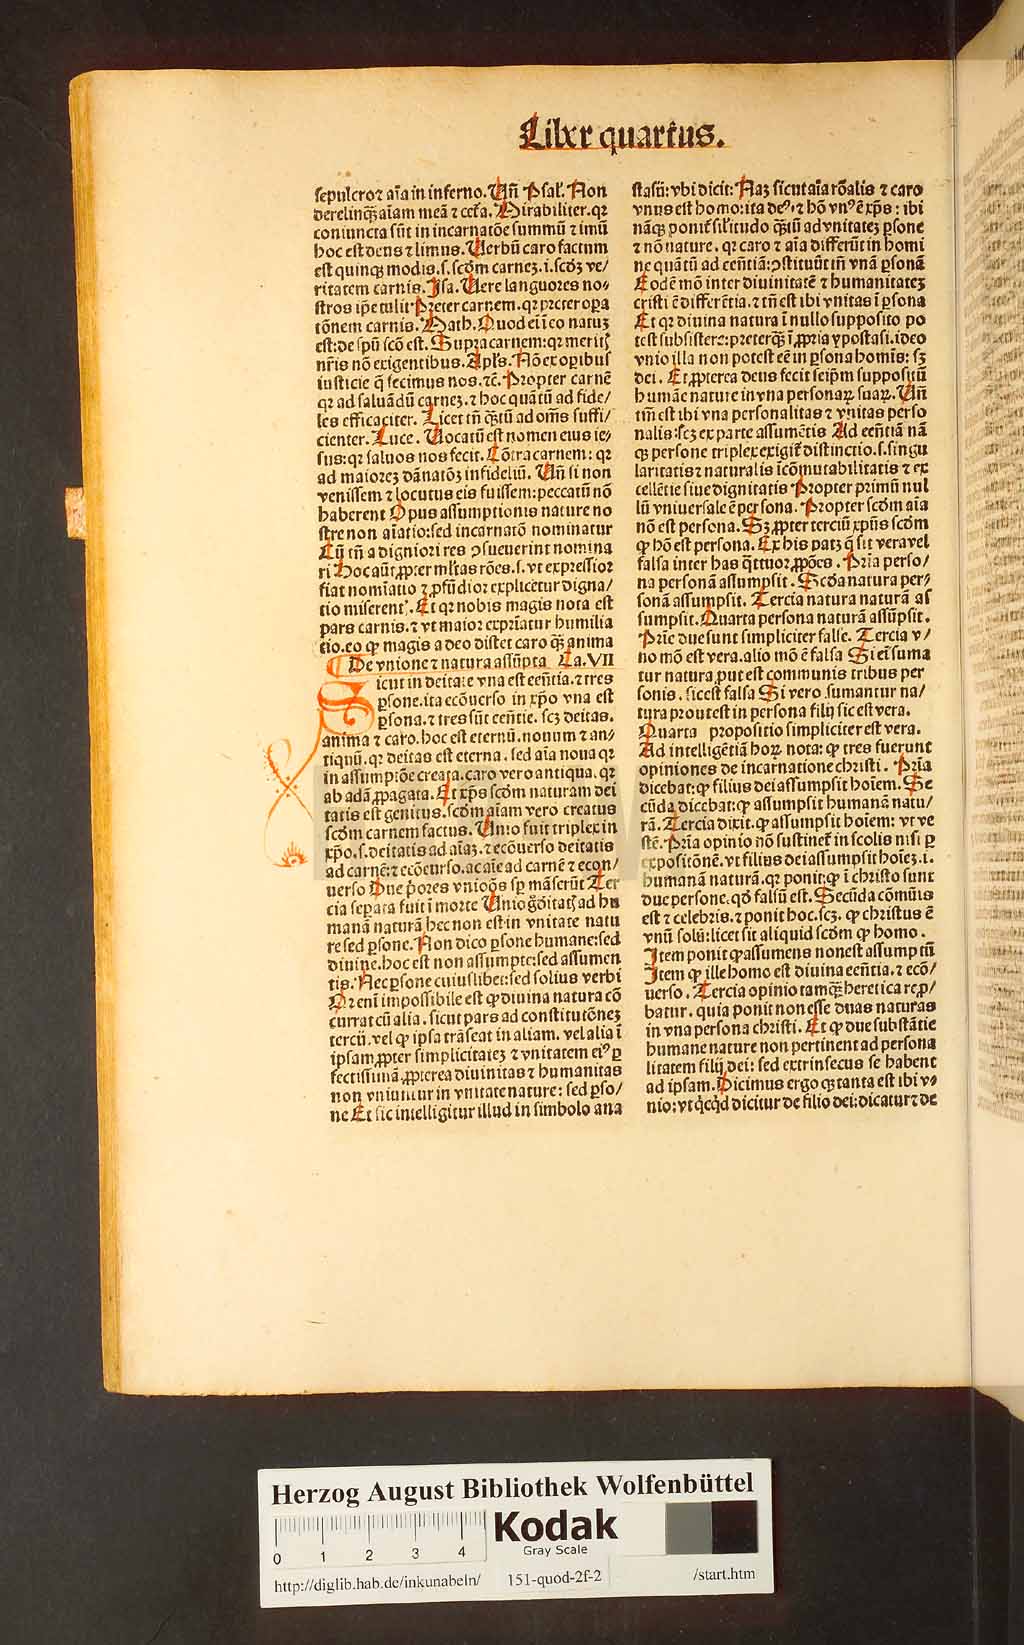 Liber quartus.
sepulcro ⁊ aīa in inferno. Vn̄ Psal. Non
derelinq̄s aīam meā ⁊ cet̄a. Mirabiliter. qꝛ
coniuncta sūt in incarnatōe summū ⁊ imū
hoc est deus ⁊ limus. Verbū caro factum
est quinqꝫ modis. s. scd̄m carneꝫ. i. scd̄ꝫ ve/
ritatem carnis. Isa. Uere languores no/
stros ip̄e tulit Preter carnem. qꝛ preter oꝑa
tōnem carnis. Math. Quod ei ī eo natuꝫ
est: de spū scō est. Supra carnem: qꝛ meritꝭ
nr̄is nō exigentibus. Apl̄s. Nō ex oꝑibus
iusticie q̄ fecimus nos. ⁊c̄. Propter carnē
qꝛ ad saluādū carneꝫ. ⁊ hoc quātū ad fide/
les efficaciter. Licet tn̄ q̄stū ad om̄s suffi/
cienter. Luce. Vocatū est nomen eius ie/
sus: qꝛ saluos nos fecit. Cōtra carnem: qꝛ
ad maioreꝫ dānatōꝫ infideliū. Vn̄ si non
venissem ⁊ locutus eis fuissem: peccatū nō
haberent Opus assumptionis nature no
stre non aīatio: sed incarnatō nominatur
Cū tn̄ a digniori res ꝯsueuerint nomina
ri Hoc aūt ꝓpter ml̄tas rōes. s. vt expressior
fiat nom̄iatio ⁊ ꝓfūdior explicetur digna/
tio miserent̄. Et qꝛ nobis magis nota est
pars carnis. ⁊ vt maioꝛ exprīatur humilia
tio. eo ꝙ magis a deo distet caro q̄ꝫ anima
De vnione ⁊ natura assūpta Ca. VII
Sicut in deitate vna est eēntia. ⁊ tres
ꝑsone. ita ecōuerso in xp̄o vna est
ꝑsona. ⁊ tres sūt eēntie. scꝫ deitas.
anima ⁊ caro. hoc est eternū. nouum ⁊ an/
tiquū. qꝛ deitas est eterna. sed aīa noua qꝛ
in assumpiōe creata. caro vero antiqua. qꝛ
ab adā ꝓpagata. Et xp̄s scd̄m naturam dei
tatis est genitus. scd̄m aīam vero creatus
scd̄m carnem factus. Unio fuit triplex in
xp̄o. s. deitatis ad aīaꝫ. ⁊ ecōuerso deitatis
ad carnē: ⁊ ecōeurso. ac aīe ad carnē ⁊ econ/
uerso Due p̄ores vnioēs sꝑ māserūt Ter
cia seꝑata fuit ī morte Unio
manā naturā hec non est in vnitate natu
re sed ꝑsone. Non dico ꝑsone humane: sed
diuine. hoc est non assumpte: sed assumen
tis. Nec ꝑsone cuiuslibet: sed solius verbi
Qꝛ enī impossibile est ꝙ diuina natura cō
currat cū alia. sicut pars ad constitutōneꝫ
tercū. vel ꝙ ipsa trāseat in aliam. vel alia ī
ipsam ꝓpter simplicitateꝫ ⁊ vnitatem eiꝰ ꝑ
fectissimā ꝓpterea diuinitas ⁊ humanitas
non vniuntur in vnitate nature: sed ꝑso/
ne Et sic intelligitur illud in simbolo ana
stasij: vbi dicit: Naꝫ sicut aīa rōalis ⁊ caro
vnus est homo: ita deꝰ ⁊ hō vnꝰ ē xp̄s: ibi
nāqꝫ ponit̄ sil̄itudo q̄stū ad vnitateꝫ ꝑsone
⁊ nō nature. qꝛ caro ⁊ aīa differūt in homi
ne quātū ad eēntiā: ꝯstituūt tn̄ vnā ꝑsonā
Eodē mō inter diuinitatē ⁊ humanitateꝫ
cristi ē differētia. ⁊ tn̄ est ibi vnitas ī ꝑsona
Et qꝛ diuina natura ī nullo supposito po
test subsistere: preterqꝫ ī ꝓpria ypostasi. ideo
vnio illa non potest eē in ꝑsona homīs: sꝫ
dei. Et ꝓpterea deus fecit seip̄m suppositū
humāe nature in vna personaꝝ suaꝝ. Vn̄
tm̄ est ibi vna personalitas ⁊ vnitas perso
nalis: scꝫ ex parte assumētis Ad eēntiā nā
qꝫ persone triplex exigit̄ distinctio. s. singu
laritatis ⁊ naturalis īcōmutabilitatis ⁊ ex
cellētie siue dignitatis Propter primū nul
lū vniuersale ē persona. Propter scd̄m aīa
nō est persona. Sꝫ ꝓpter terciū xpūs scd̄m
ꝙ hō est persona. Ex his patꝫ q̄ sit vera vel
falsa inter has q̄ttuoꝛ ꝓpōes. Prīa perso/
na personā assumpsit. Scd̄a natura per/
sonā assumpsit. Tercia natura naturā as
sumpsit. Quarta persona naturā assūpsit.
Prīe due sunt simpliciter false. Tercia v/
no mō est vera. alio mō ē falsa Si eī suma
tur natura ꝓut est communis tribus per
sonis. sic est falsa Si vero sumantur na/
tura prout est in persona filij sic est vera.
Quarta propositio simpliciter est vera.
Ad intelligētiā hoꝝ nota: ꝙ tres fuerunt
opiniones de incarnatione christi. Prīa
dicebat: ꝙ filius dei assumpsit hoīem. Se
cūda dicebat: ꝙ assumpsit humanā natu/
rā. Tercia dixit. ꝙ assumpsit hoīem: vt ve
stē. Prīa opinio nō sustinet̄ in scolis nisi ꝑ
expositōnē. vt filius dei assumpsit hoīeꝫ. i.
humanā naturā. qꝛ ponit: ꝙ ī christo sunt
due persone. qd̄ falsū est. Secūda cōmūis
est ⁊ celebris. ⁊ ponit hoc. scꝫ. ꝙ christus ē
vnū solū: licet sit aliquid scd̄m ꝙ homo.
Item ponit ꝙ assumens non est assumptū
Item ꝙ ille homo est diuina eēntia. ⁊ ecō/
uerso. Tercia opinio tamqꝫ heretica reꝓ/
batur. quia ponit non esse duas naturas
in vna persona christi. Et ꝙ due substātie
humane nature non pertinent ad persona
litatem filij dei: sed extrinsecus se habent
ad ipsam. Dicimus ergo qꝫ tanta est ibi v/
nio: vt q̇cq̇d dicitur de filio dei: dicatur ⁊ de
Herzog August Bibliothek Wolfenbüttel
0 1 2 3 4
Kodak
Gray Scale
http://diglib.hab.de/inkunabeln/ 151-quod-2f-2 /start.htm